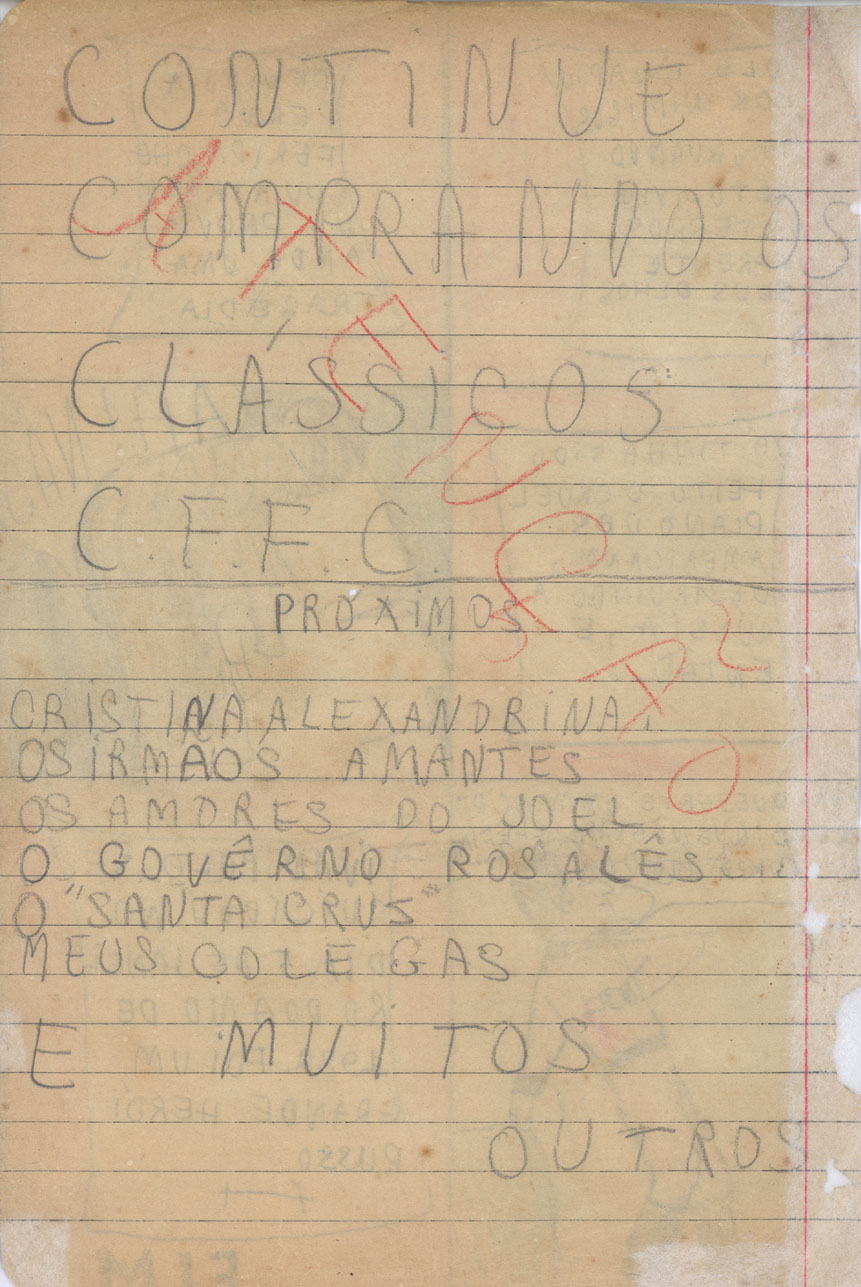 CONTINUE
COMPRANDO OS
CLÁSSICOS
C.F.F.C.
ATENÇÃO
PRÓXIMOS
CRISTINA ALEXANDRINA.
OS IRMÃOS AMANTES
OS AMORES DO JOEL
O GOVÊRNO ROSALÊS
O "SANTA CRUS"
MEUS COLEGAS
E MUITOS
OUTROS